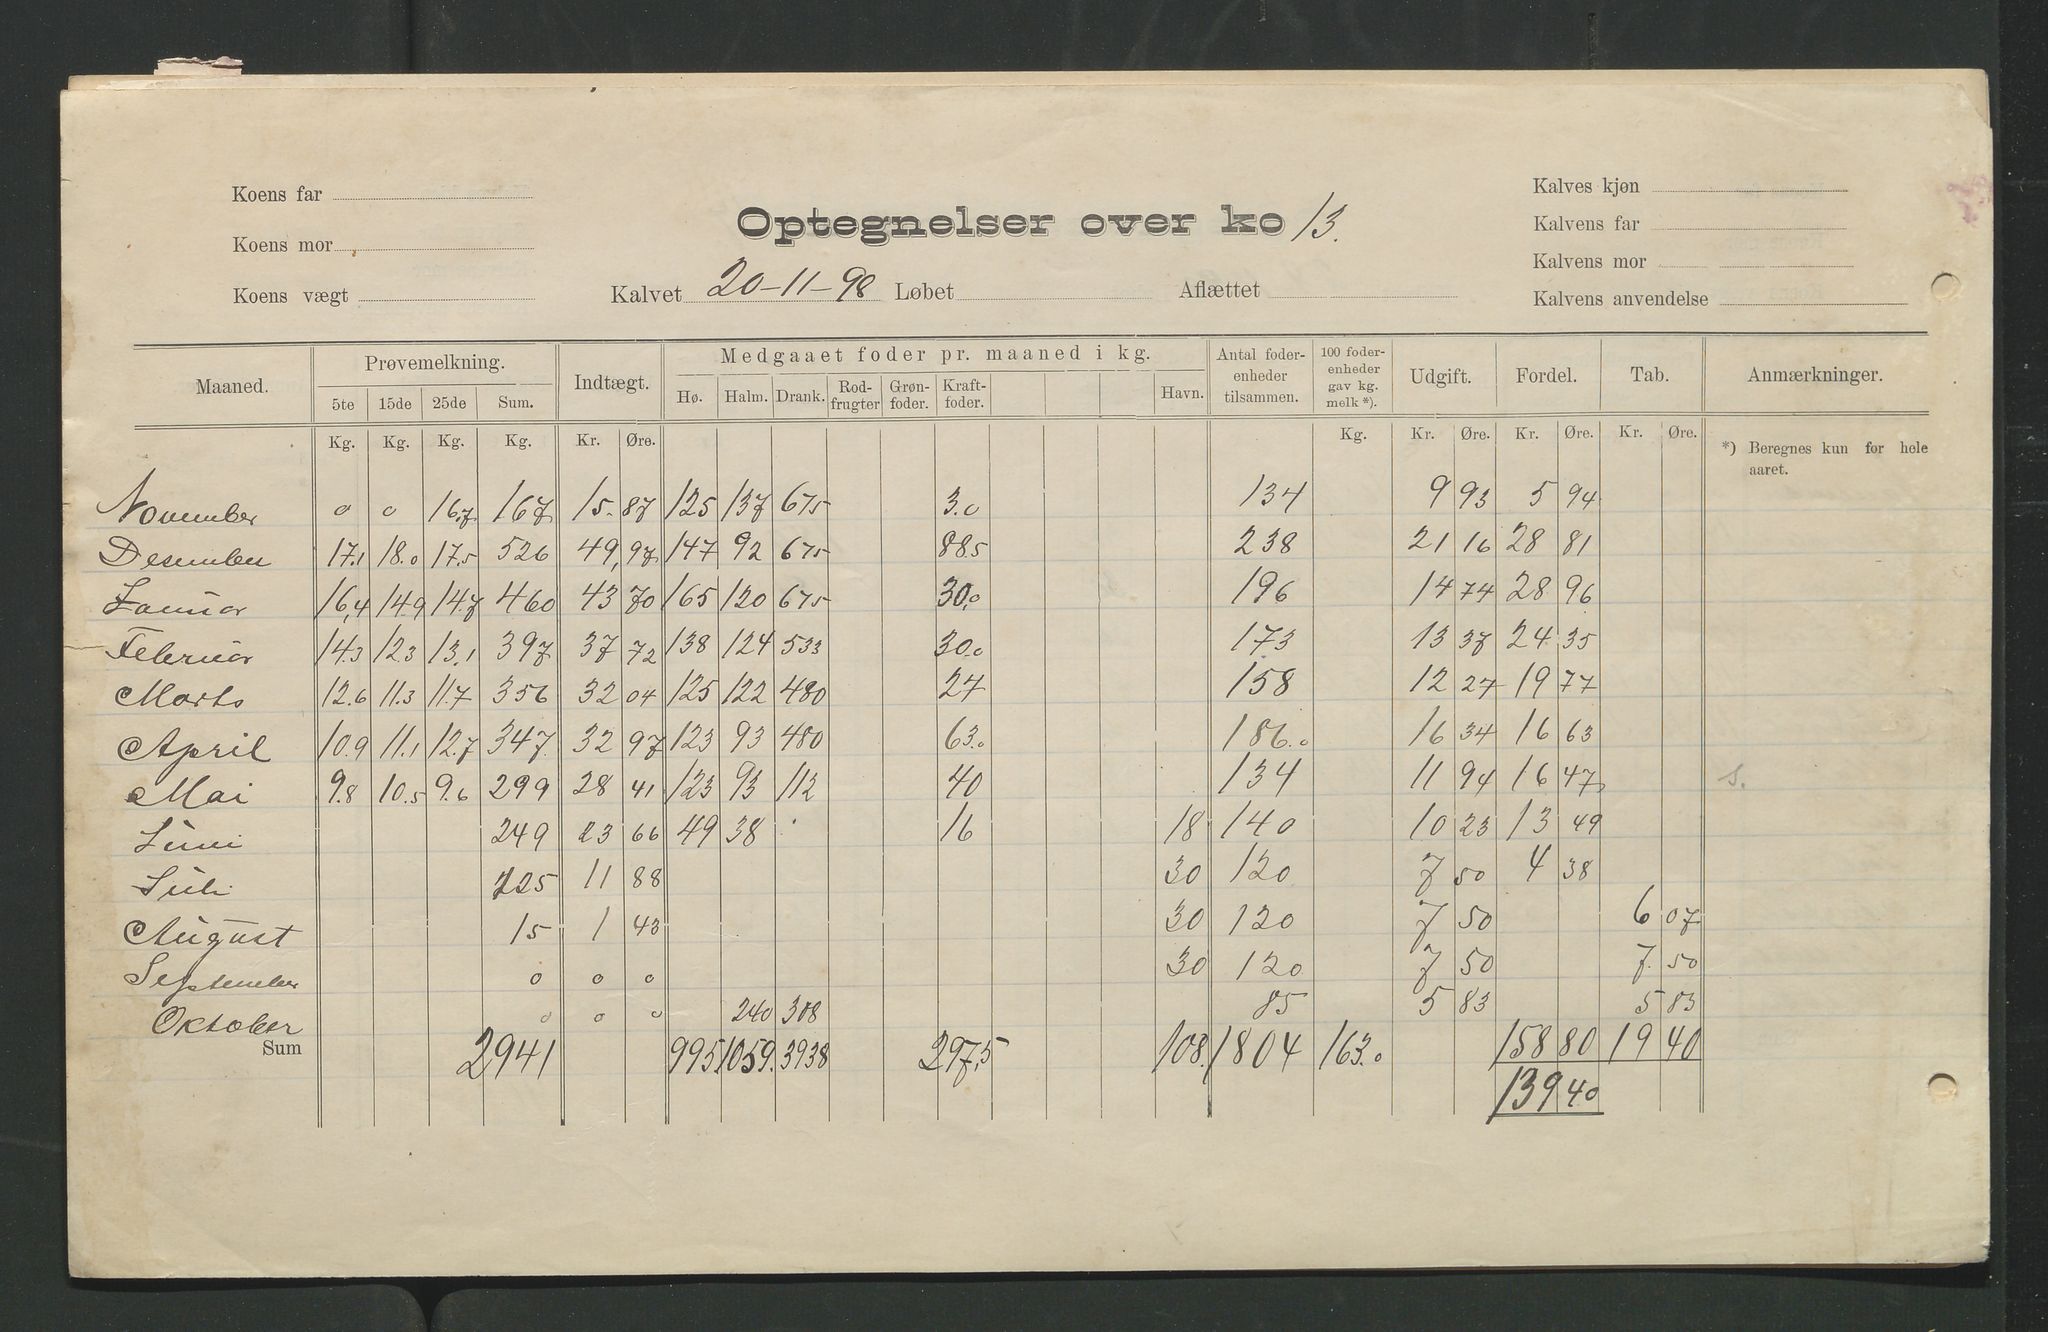 Koens far
Koens mor
Koens vægt
Optegnelser over ko 13.
Kalvet 20-11-98 Løbet Aflættet
Kalves kjøn
Kalvens far
Kalvens mor
Kalvens anvendelse
Maaned. Prøvemelkning. Indtægt. Medgaaet foder pr. maaned i kg. Antal foder-enheder tilsammen. 100 foder-enheder gav kg. melk *). Udgift. Fordel. Tab. Anmærkninger.
5te 15de 25de Sum. Hø. Halm. Drank. Rod-frugter Grøn-foder. Kraft-foder. Havn.
Kg. Kg. Kg. Kg. Kr. Øre. Kg. Kr. Øre. Kr. Øre. Kr. Øre. *) Beregnes kun for hele aaret.
November 0 0 16.7 167 15. 87 125 137 675 3.0 134 9 93 5 94
Desember 17.1 18.0 17.5 526 49, 97 147 92 675 885 238 21 16 28 81
Januar 16,4 149 14.7 460 43 70 165 120 675 30,0 196 14 74 28 96
Februar 14.3 123 13.1 397 37 72 138 124 533 30.0 173 13 37 24 35
Marts 12.6 11.3 11.7 356 32 04 125 122 480 27 158 12 27 19 77
April 10.9 11.1 12.7 347. 32 97 123 93 480 63.0 186.0 16 34 16 63
Mai 9.8 10.5 9.6 299 28 41 123 93 112 40 134 11 94 16 47 s.
Juni 249 23 66 49 38 16 18 140 10 23 13 49
Juli 125 11 88 30 120 7 50 4 38
August 15 1 43 30 120 7 50 6 07
September 0 0 0 30 120 7 50 7. 50
Oktober 0 0 0 240 308 85 5 83 5 83
Sum 2941 995. 1059. 3938 297,5 108. 1804 163.0 158 80 19 40
139 40